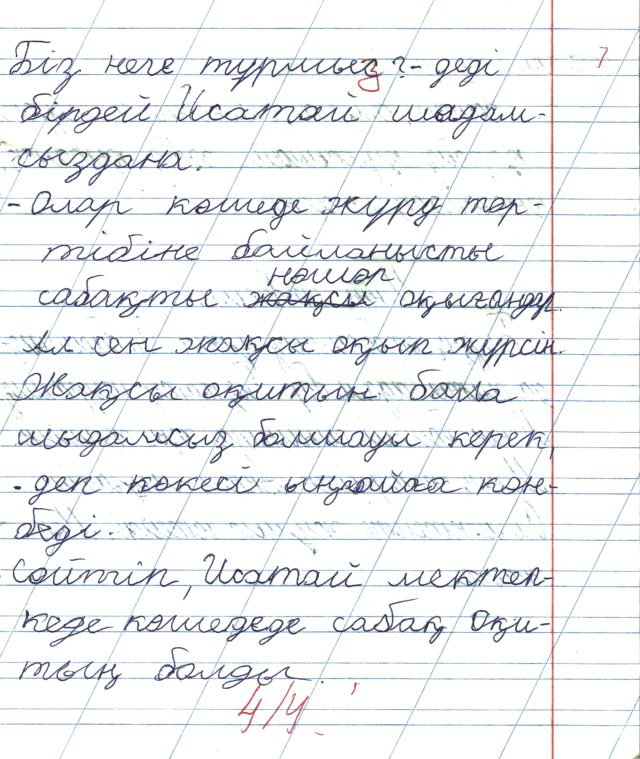 Біз неге турмыз ?- деді
бірдей Исатай шадам-
сыздана.
- Олар көшеде жүру тәр-
тібіне байланысты
нашар
сабақты жақсы оқығандар.
Ал сен жақсы оқып жүрсін.
Жақсы оқитын бала
шыдамсыз болмауы керек,
- деп көкесі ыңғайға кон-
беді.
Сөйтіп, Исатай мектеп-
кеде көшедеде сабақ оқи-
тың болды.
4/4